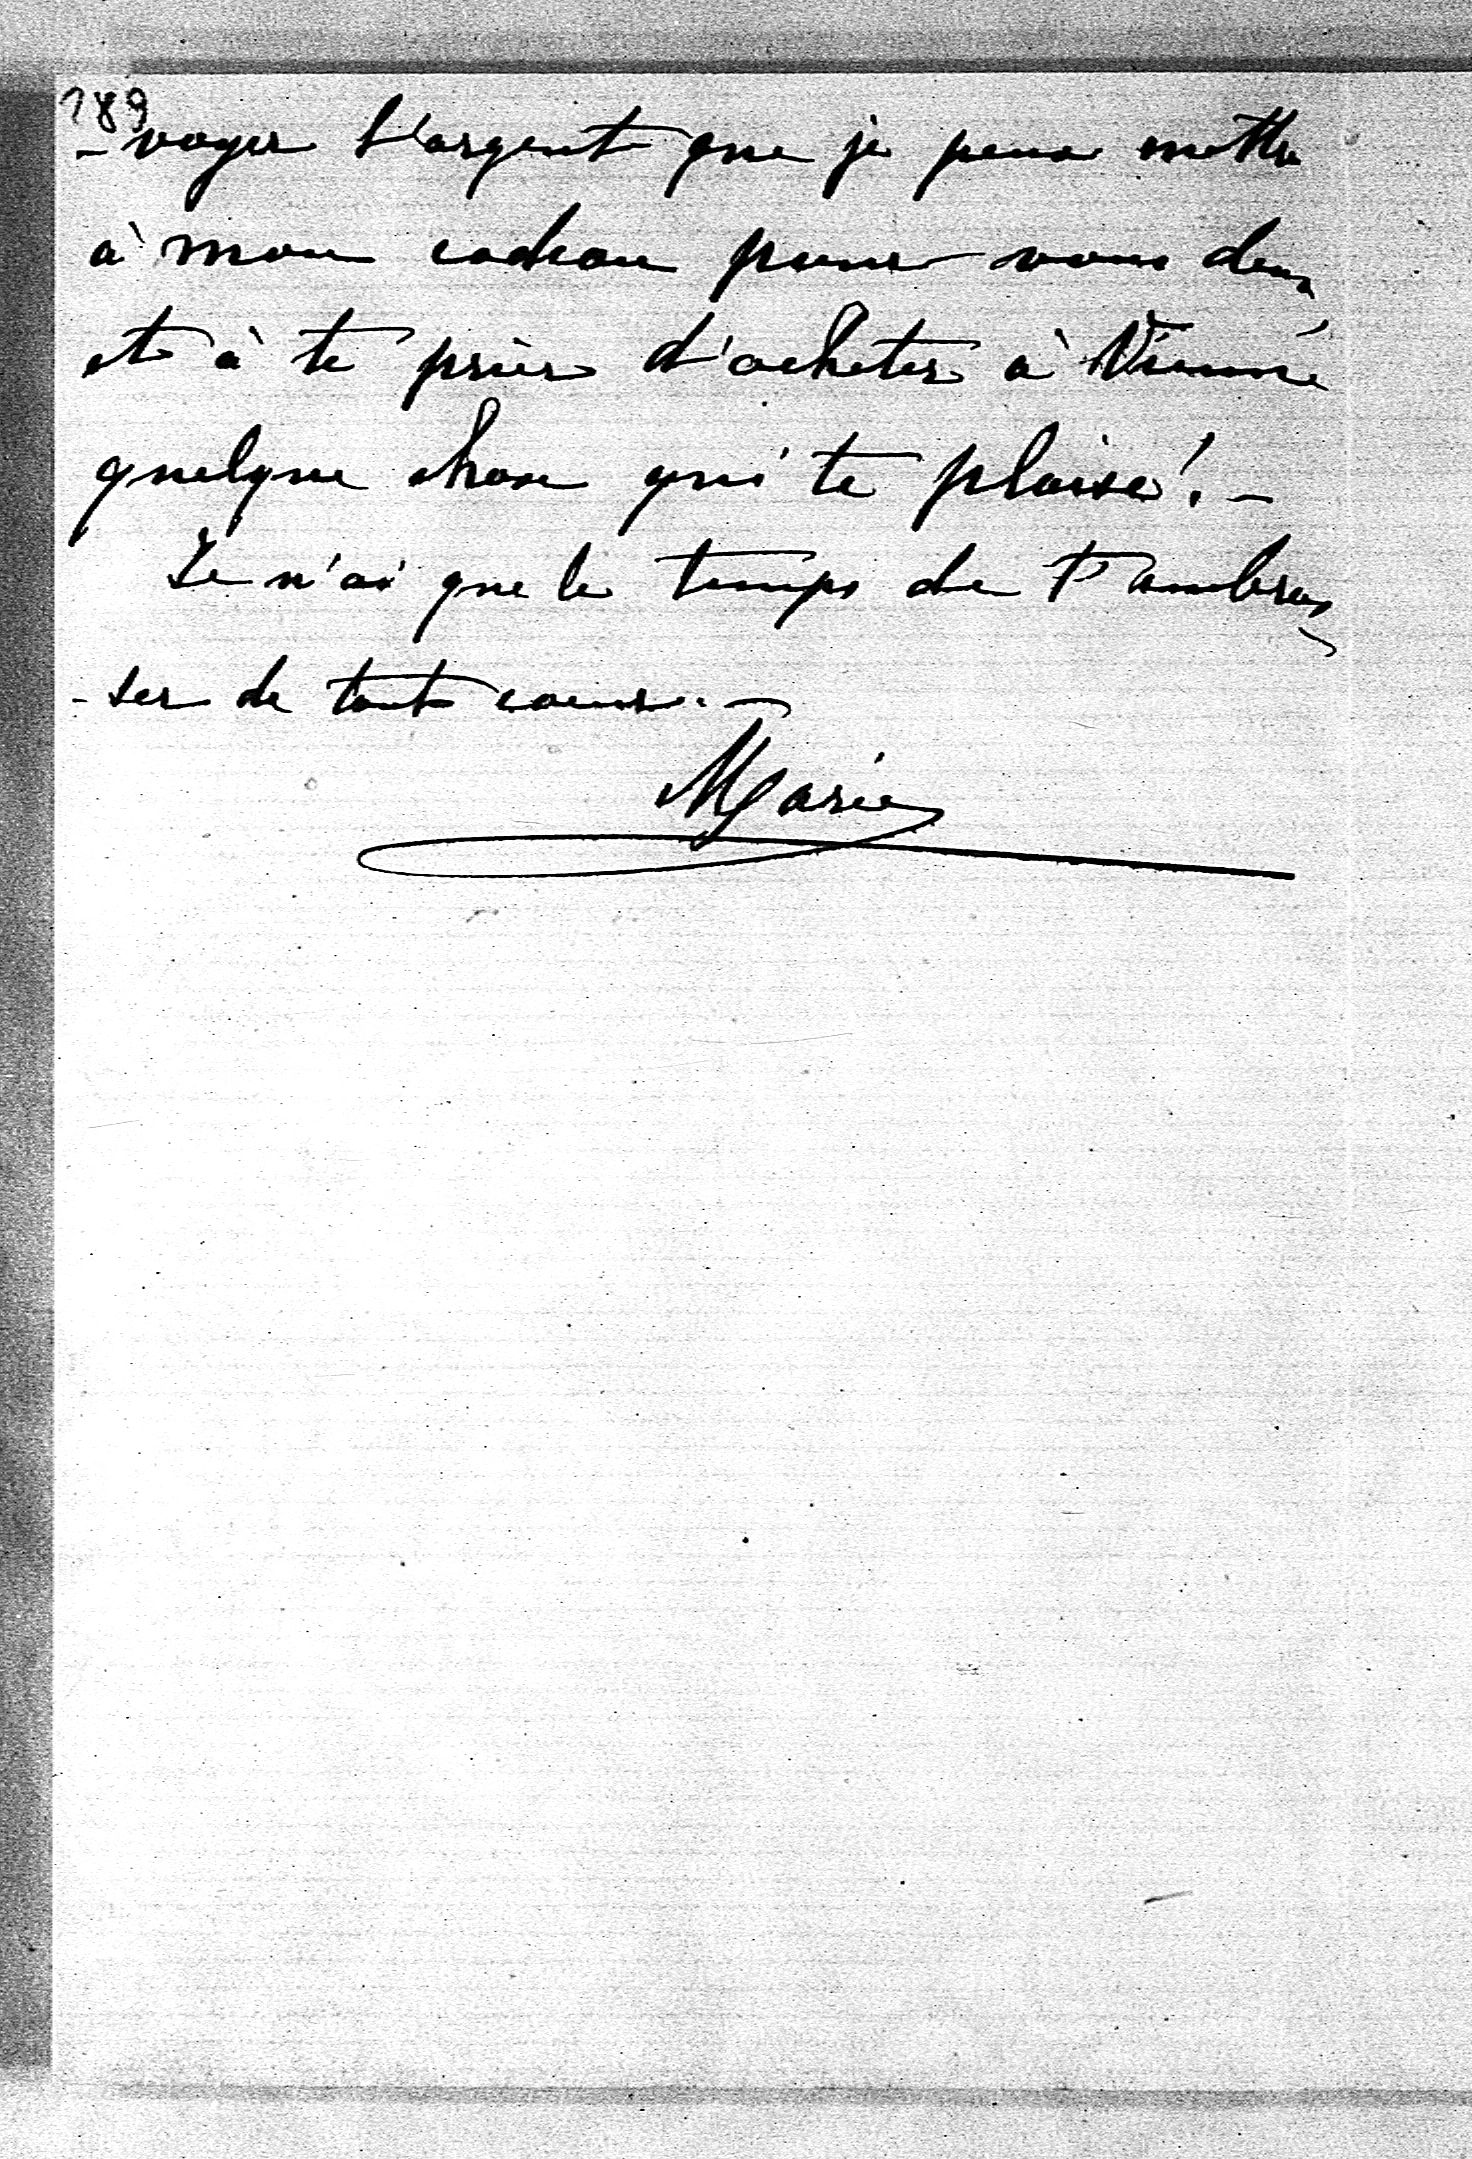 189
- voyer l'argent que je peux mettre
à mon cadeau pour vous deux,
et à te prier d'acheter à Vienne
quelque chose qui te plaise! -
Je n'ai que le temps de t'embras-
- ser de tout coeur. -
Marie